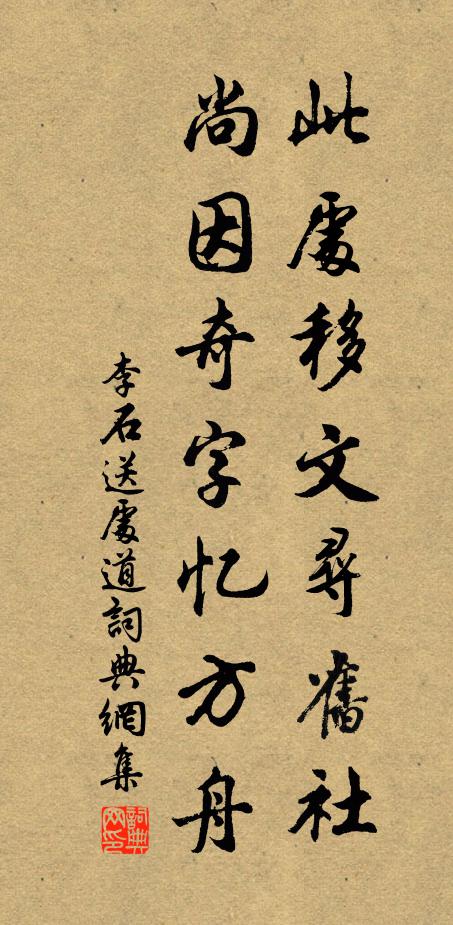 此處移文尋舊社
尚因奇字忆方舟
李石送處道詞典網集
詞典网印